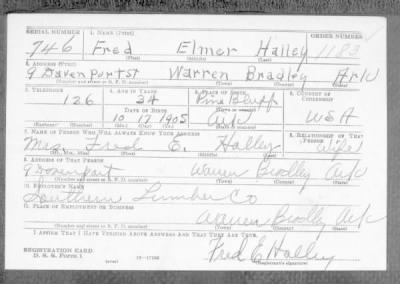 SERIAL NUMBER 1. NAME (Print) ORDER NUMBER
746 Fred Elmer Halley 1183
(First) (Middle) (Last)
2. ADDRESS (Print)
9 Davenport St Warren Bradley Ark
(Number and street or R. F. D. number) (Town) (County) (State)
3. TELEPHONE 4. AGE IN YEARS 5. PLACE OF BIRTH 6. COUNTRY OF CITIZENSHIP
126 34 Pine Bluff
DATE OF BIRTH
10 17 1905 Ark USA
(Mo.) (Day) (Yr.)
7. NAME OF PERSON WHO WILL ALWAYS KNOW YOUR ADDRESS 8. RELATIONSHIP OF THAT PERSON
Mrs. Fred E. Halley wife
(Mr., Mrs., Miss) (First) (Middle) (Last)
9. ADDRESS OF THAT PERSON
9 Davenport Warren Bradley Ark
(Number and street or R. F. D. number) (Town) (County) (State)
10. EMPLOYER'S NAME
Southern Lumber Co
11. PLACE OF EMPLOYMENT OR BUSINESS
Warren Bradley Ark
(Number and street or R. F. D. number) (Town) (County) (State)
I AFFIRM THAT I HAVE VERIFIED ABOVE ANSWERS AND THAT THEY ARE TRUE.
REGISTRATION CARD Fred E. Halley
D. S. S. Form 1 (over) (Registrant's signature)